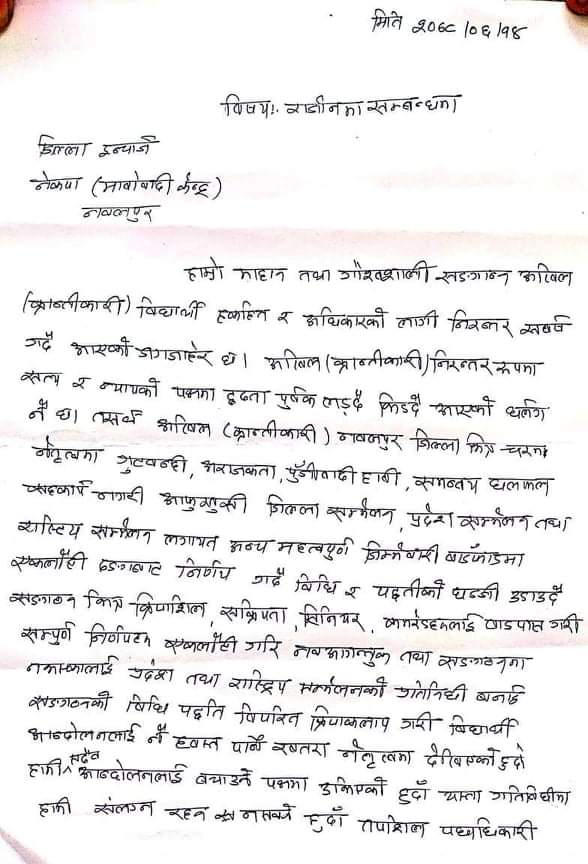 मिति २०७८/०६/१४
विषय:- राजीनामा सम्बन्धमा
जिल्ला इन्चार्ज
नेकपा (माओवादी केन्द्र)
नवलपुर
हाम्रो महान तथा गौरवशाली सङगठन अखिल
(क्रान्तीकारी) विद्यार्थी हकहित र अधिकारको लागी निरन्तर संघर्ष
गर्दै आएको जगजाहेर छ। अखिल (क्रान्तीकारी) निरन्तर रुपमा
सत्य र न्यायको पक्षमा दृढता पुर्वक लड्दै भिड्दै आएको
नै छ। तसर्थ अखिल (क्रान्तीकारी) नवलपुर जिल्ला भित्र चरम
नेतृत्वमा गुटबन्दी, अराजकता, पुँजीवादी हावी, समन्वय छलफल
सहकार्य नगरी आफुखुसी जिल्ला सम्मेलन, प्रदेश सम्मेलन तथा
राष्ट्रिय सम्मेलन लगायत अन्य महत्वपुर्ण जिम्मेवारी बाडफाँडमा
एकलौटी ढङगबाट निर्णय गर्दै विधि र पद्दतीको धज्जी उडाउदै
सङगठन भित्र क्रियाशिल, सक्रियता, सिनियर, कमरेडहरुलाई बाइपास गरी
सम्पुर्ण निर्णयहरु एकलौटी गरि नवआगन्तुक तथा सङगठनमा
नभएकालाई प्रदेश तथा राष्ट्रिय सम्मेलनको प्रतिनिधी बनाई
सङगठनको विधि पद्दति विपरित क्रियाकलाप गरी विद्यार्थी
आन्दोलनलाई नै ध्वस्त पार्ने खतरा नेतृत्वमा देखिएको हुदा
हामी सदैव आन्दोलनलाई बचाउने पक्षमा उभिएको हुदाँ यस्ता गतिविधीमा
हामी संलग्न रहन नसक्ने हुदाँ तपशिल पदाधिकारी